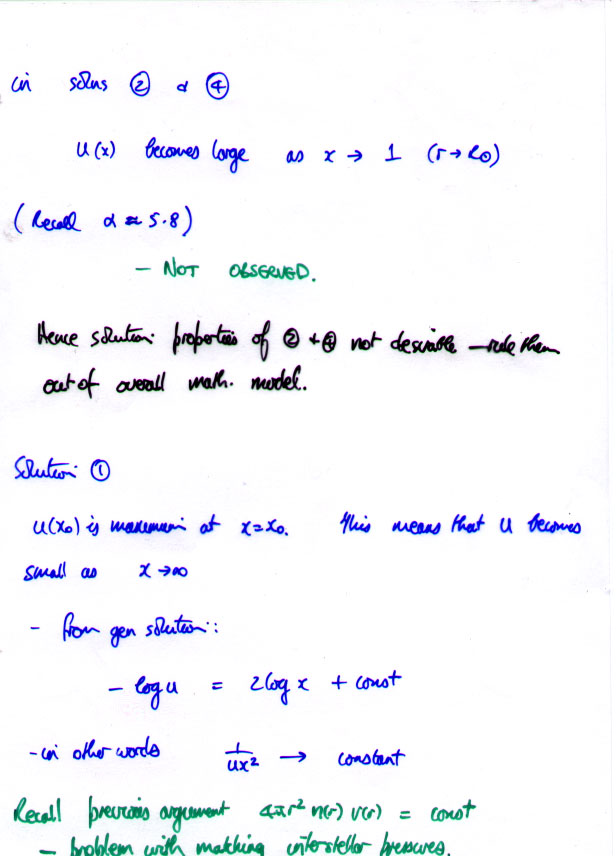 in solns ② & ④
U(x) becomes large as x → 1 (r → R⊙)
(Recall α ≈ 5.8)
— NOT OBSERVED.
Hence solution properties of ② + ④ not desirable — rule them
out of overall math. model.
Solution ①
U(x₀) is maximum at x = x₀. This means that U becomes
small as x → ∞
- from gen solution:
- log u = 2 log x + const
- in other words 1/(ux²) → constant
Recall previous argument 4πr² n(r) v(r) = const
— problem with matching interstellar pressures.